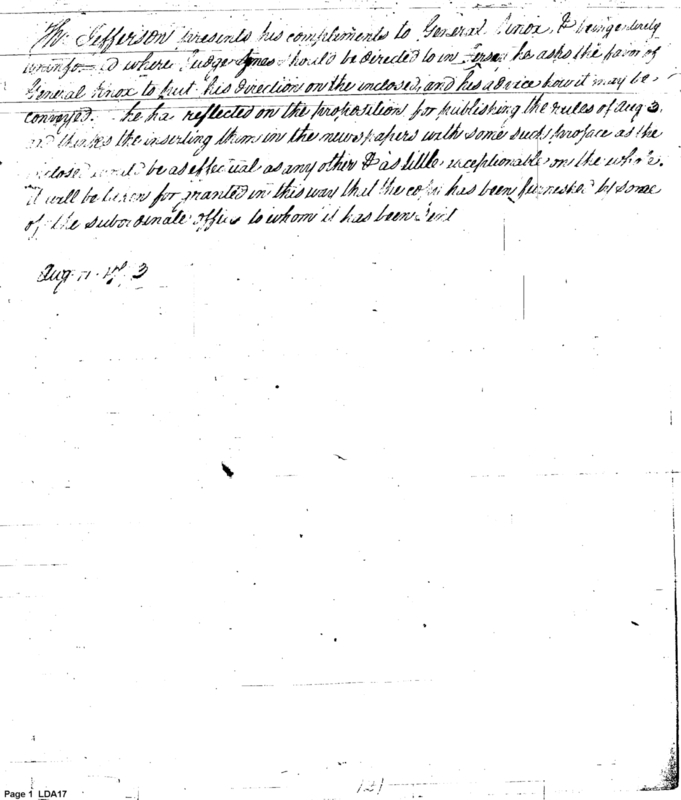 Th. Jefferson presents his compliments to General Knox, & being entirely
where Judge should be directed to in he asks the favor of
General Knox to put his direction on the inclosed, and his advice how it may be
conveyed. he ha reflected on the proposition for publishing the rules of Aug 3.
and thinks the inserting them in the newspapers with some such preface as the
be as effectual as any other & as little exceptionable on the whole.
it will be taken for granted in this way that the copy has been furnished by some
of the subordinate offices to whom it has been sent
Aug. 3
121
Page 1 LDA17